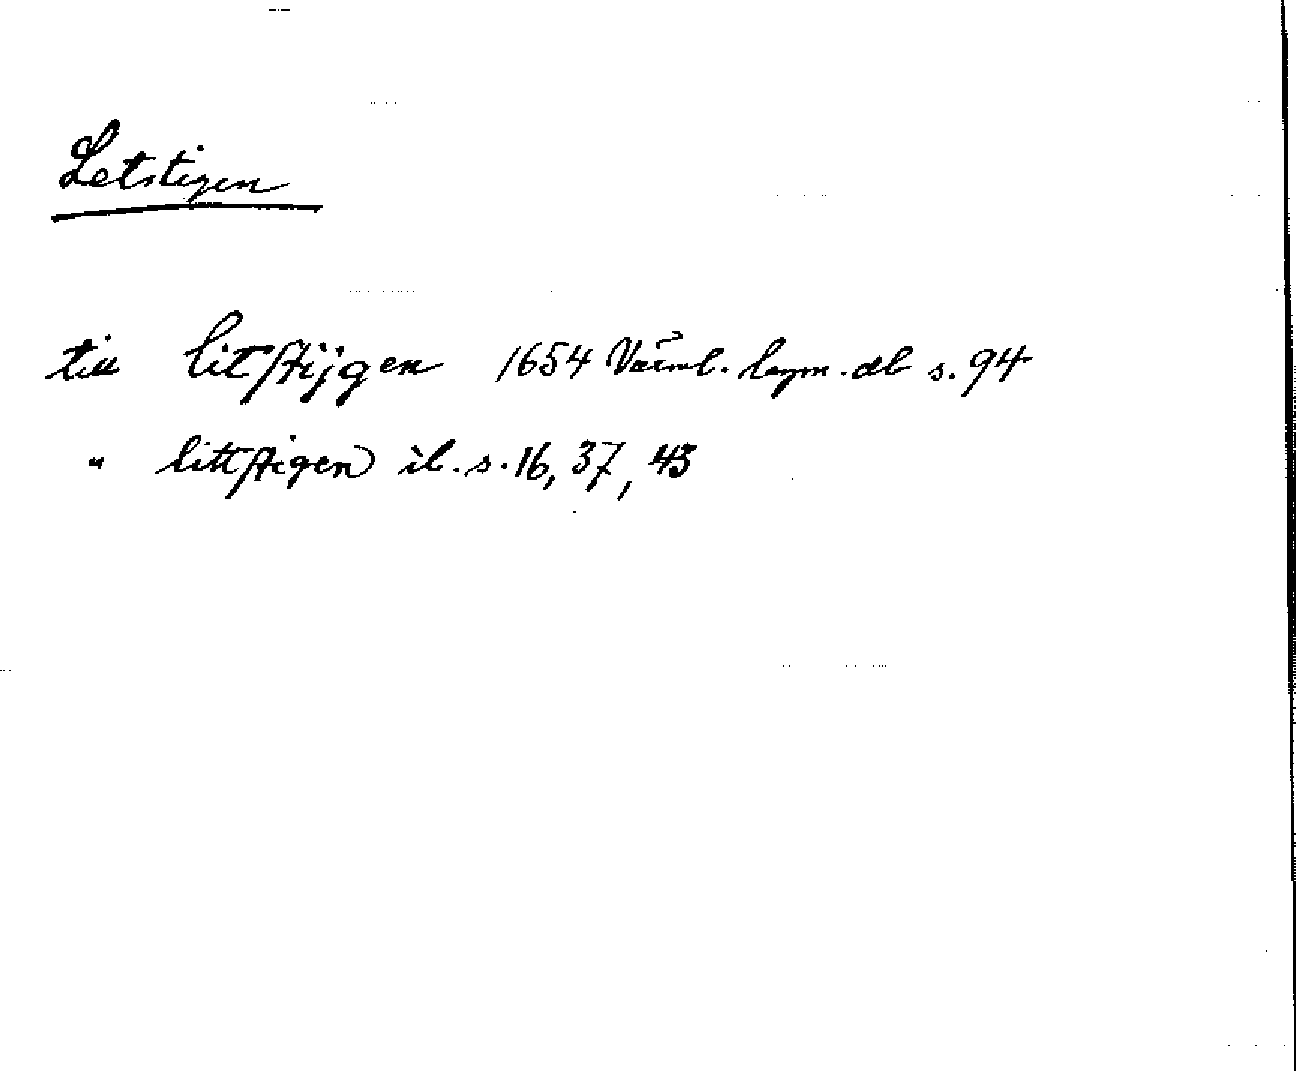 Letstigen
till litstijgen 1654 Värml. lagm. db s. 94
" littstigen ib. s. 16, 37, 43